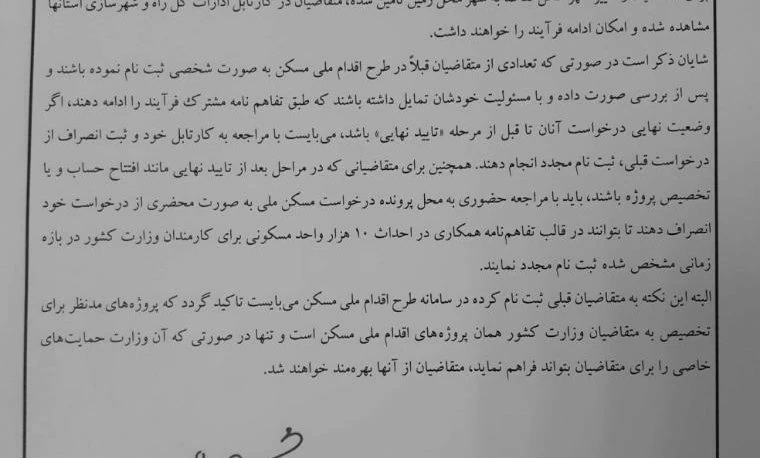 شده، متقاضیان در کارتابل ادارات کل راه و شهرسازی استانها
مشاهده شده و امکان ادامه فرآیند را خواهند داشت.
شایان ذکر است در صورتی که تعدادی از متقاضیان قبلاً در طرح اقدام ملی مسکن به صورت شخصی ثبت نام نموده باشند و
پس از بررسی صورت داده و با مسئولیت خودشان تمایل داشته باشند که طبق تفاهم نامه مشترک فرآیند را ادامه دهند، اگر
وضعیت نهایی درخواست آنان تا قبل از مرحله «تایید نهایی» باشد، می‌بایست با مراجعه به کارتابل خود و ثبت انصراف از
درخواست قبلی، ثبت نام مجدد انجام دهند. همچنین برای متقاضیانی که در مراحل بعد از تایید نهایی مانند افتتاح حساب و یا
تخصیص پروژه باشند، باید با مراجعه حضوری به محل پرونده درخواست مسکن ملی به صورت محضری از درخواست خود
انصراف دهند تا بتوانند در قالب تفاهم‌نامه همکاری در احداث ۱۰ هزار واحد مسکونی برای کارمندان وزارت کشور در بازه
زمانی مشخص شده ثبت نام مجدد نمایند.
البته این نکته به متقاضیان قبلی ثبت نام کرده در سامانه طرح اقدام ملی مسکن می‌بایست تاکید گردد که پروژه‌های مدنظر برای
تخصیص به متقاضیان وزارت کشور همان پروژه‌های اقدام ملی مسکن است و تنها در صورتی که آن وزارت حمایت‌های
خاصی را برای متقاضیان بتواند فراهم نماید، متقاضیان از آنها بهره‌مند خواهند شد.